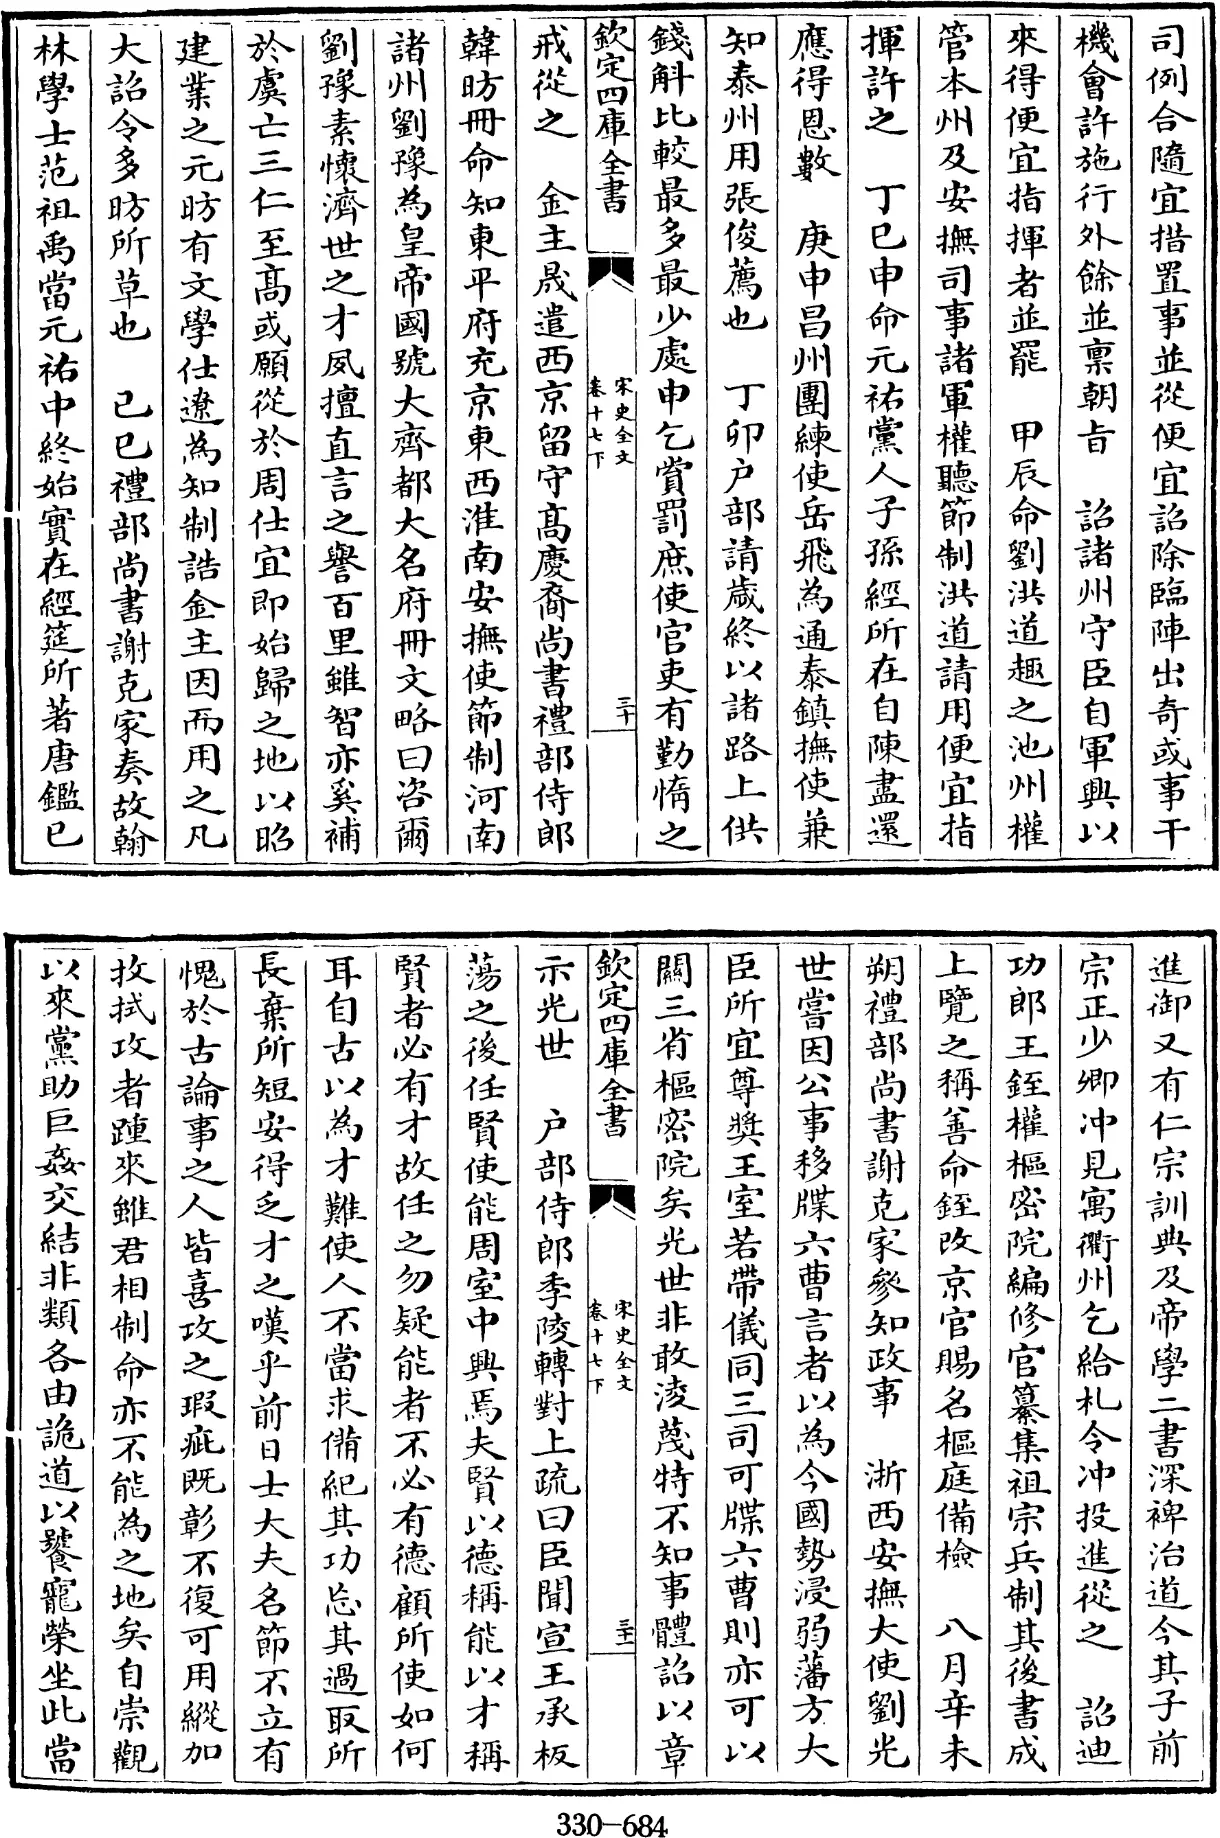 司例合隨宜措置事並從便宜詔除臨陣出奇或事干
機會許施行外餘並稟朝旨　詔諸州守臣自軍興以
來得便宜指揮者並罷　甲辰命劉洪道趣之池州權
管本州及安撫司事諸軍權聽節制洪道請用便宜指
揮許之　丁巳申命元祐黨人子孫經所在自陳盡還
應得恩數　庚申昌州團練使岳飛為通泰鎮撫使兼
知泰州用張俊薦也　丁卯户部請歲終以諸路上供
錢斛比較最多最少處申乞賞罰庶使官吏有勤惰之
欽定四庫全書　宋史全文卷十七下　三十
戒從之　金主晟遣西京留守高慶裔尚書禮部侍郎
韓昉冊命知東平府充京東西淮南安撫使節制河南
諸州劉豫為皇帝國號大齊都大名府冊文略曰咨爾
劉豫素懷濟世之才夙擅直言之譽百里雖智亦奚補
於虞亡三仁至高或願從於周仕宜即始歸之地以昭
建業之元昉有文學仕遼為知制誥金主因而用之凡
大詔令多昉所草也　己巳禮部尚書謝克家奏故翰
林學士范祖禹當元祐中終始實在經筵所著唐鑑已
進御又有仁宗訓典及帝學二書深裨治道今其子前
宗正少卿冲見寓衢州乞給札令冲投進從之　詔迪
功郎王銍權樞密院編修官纂集祖宗兵制其後書成
上覽之稱善命銍改京官賜名樞庭備檢　八月辛未
朔禮部尚書謝克家參知政事　浙西安撫大使劉光
世嘗因公事移牒六曹言者以為今國勢浸弱藩方大
臣所宜尊奬王室若帶儀同三司可牒六曹則亦可以
關三省樞密院矣光世非敢淩蔑特不知事體詔以章
欽定四庫全書　宋史全文卷十七下　三十一
示光世　户部侍郎季陵轉對上疏曰臣聞宣王承板
蕩之後任賢使能周室中興焉夫賢以德稱能以才稱
賢者必有才故任之勿疑能者不必有德顧所使如何
耳自古以為才難使人不當求備紀其功忘其過取所
長棄所短安得乏才之嘆乎前日士大夫名節不立有
愧於古論事之人皆喜攻之瑕疵既彰不復可用縱加
抆拭攻者踵來雖君相制命亦不能為之地矣自崇觀
以來黨助巨姦交結非類各由詭道以饕寵榮坐此當
330-684